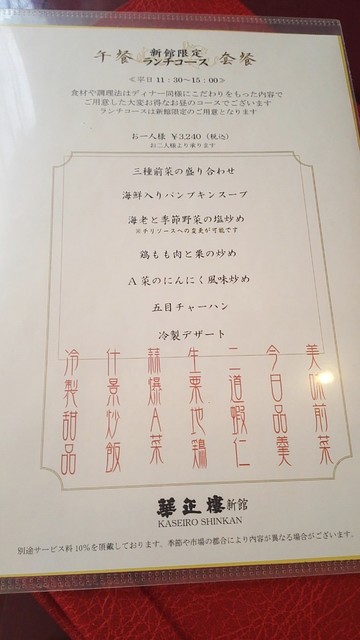 午餐 新館限定 套餐
ランチコース
≪平日 11：30～15：00≫
食材や調理法はディナー同様にこだわりをもった内容で
ご用意した大変お得なお昼のコースでございます
ランチコースは新館限定のご用意となります
お一人様 ￥3,240（税込）
お二人様より承ります
三種前菜の盛り合わせ
海鮮入りパンプキンスープ
海老と季節野菜の塩炒め
※チリソースへの変更が可能です
鶏もも肉と栗の炒め
A菜のにんにく風味炒め
五目チャーハン
冷製デザート
美味前菜
今日品羹
二道蝦仁
生栗地鶏
蒜爆A菜
什景炒飯
冷製甜品
華正樓 新館
KASEIRO SHINKAN
別途サービス料10%を頂戴しております。季節や市場の都合により内容が異なる場合がございます。